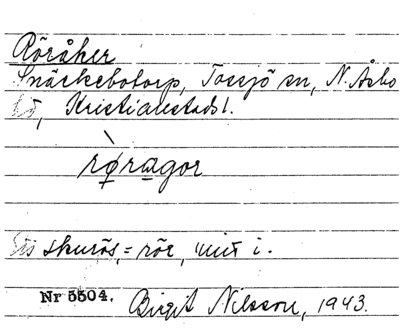 Röråker
Snäckebotorp, Tossjö sn, N. Åsbo
Kristianstads l.
rø̀ragor
skurös, = rör, mitt i.
Nr 5504. Birgit Nilsson, 1943.